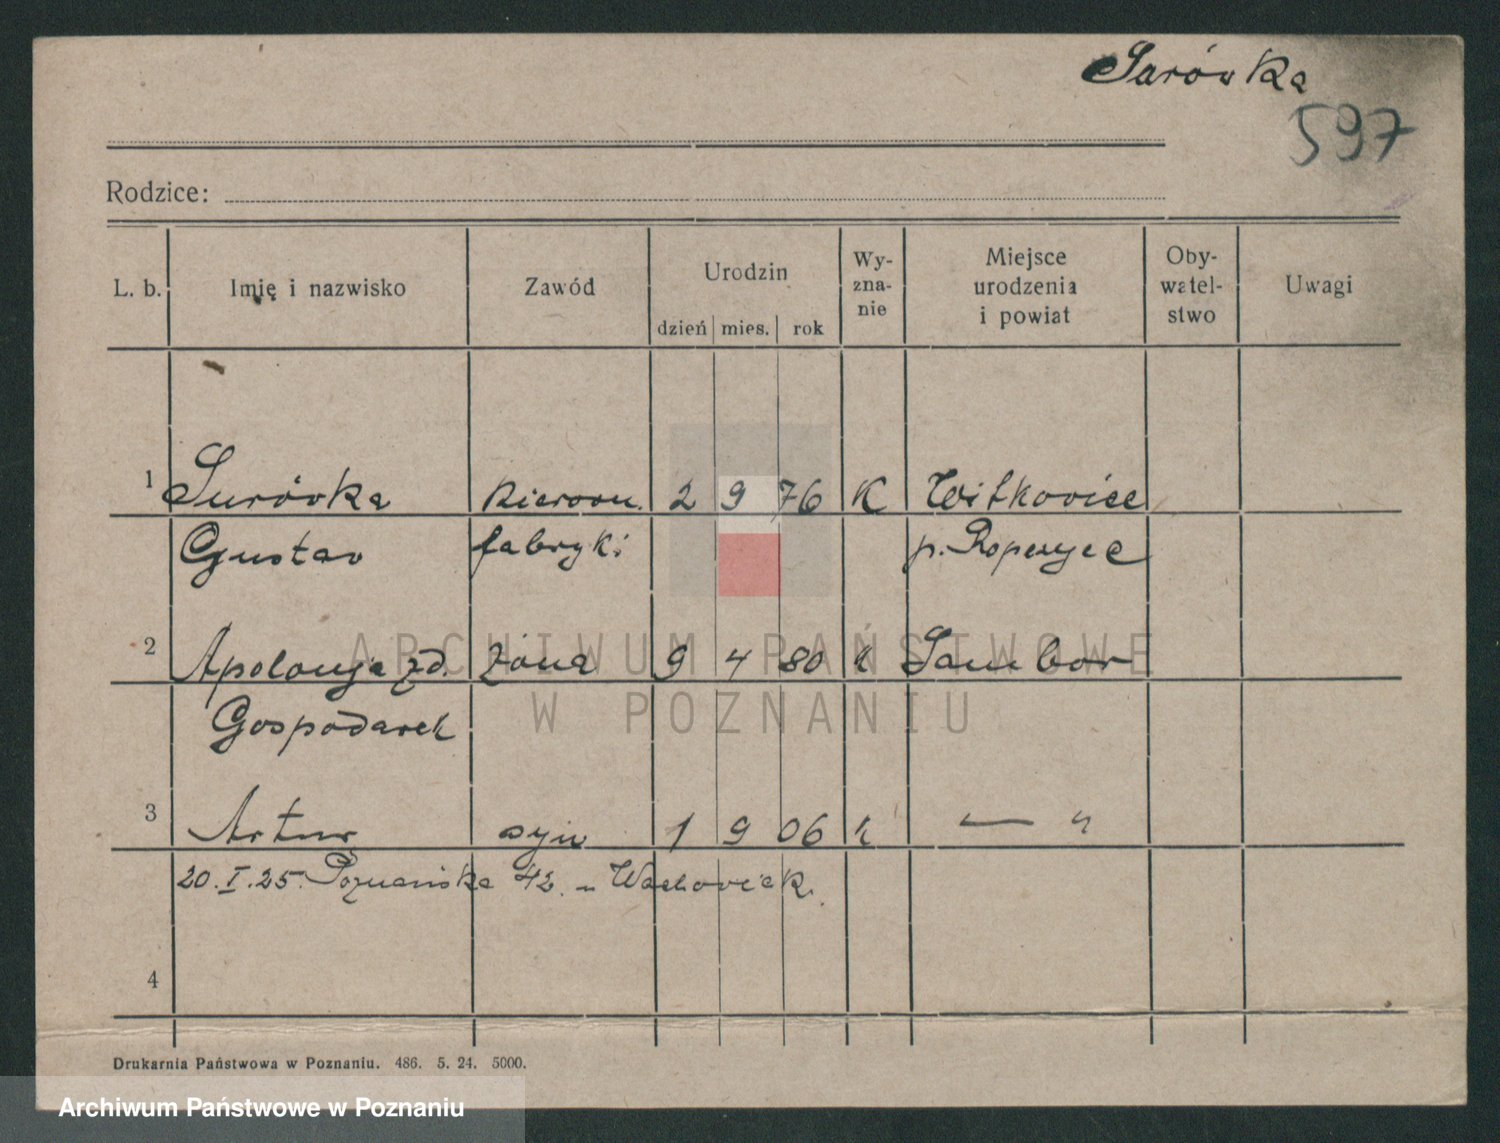 Surówka
597
Rodzice:
L. b. Imię i nazwisko Zawód Urodzin dzień mies. rok Wy-zna-nie Miejsce urodzenia i powiat Oby-watel-stwo Uwagi
1 Surówka kierown. 2 9 76 K Witkowice
Gustav fabryki p. Ropczyce
2 Apolonja zd. żona 9 4 80 k Sambor
Gospodarek
3 Artur syn 1 9 06 k — „
20. I. 25. Poznańska 42. u Wachowiak.
4
Drukarnia Państwowa w Poznaniu. 486. 5. 24. 5000.
ARCHIWUM PAŃSTWOWE
W POZNANIU
Archiwum Państwowe w Poznaniu